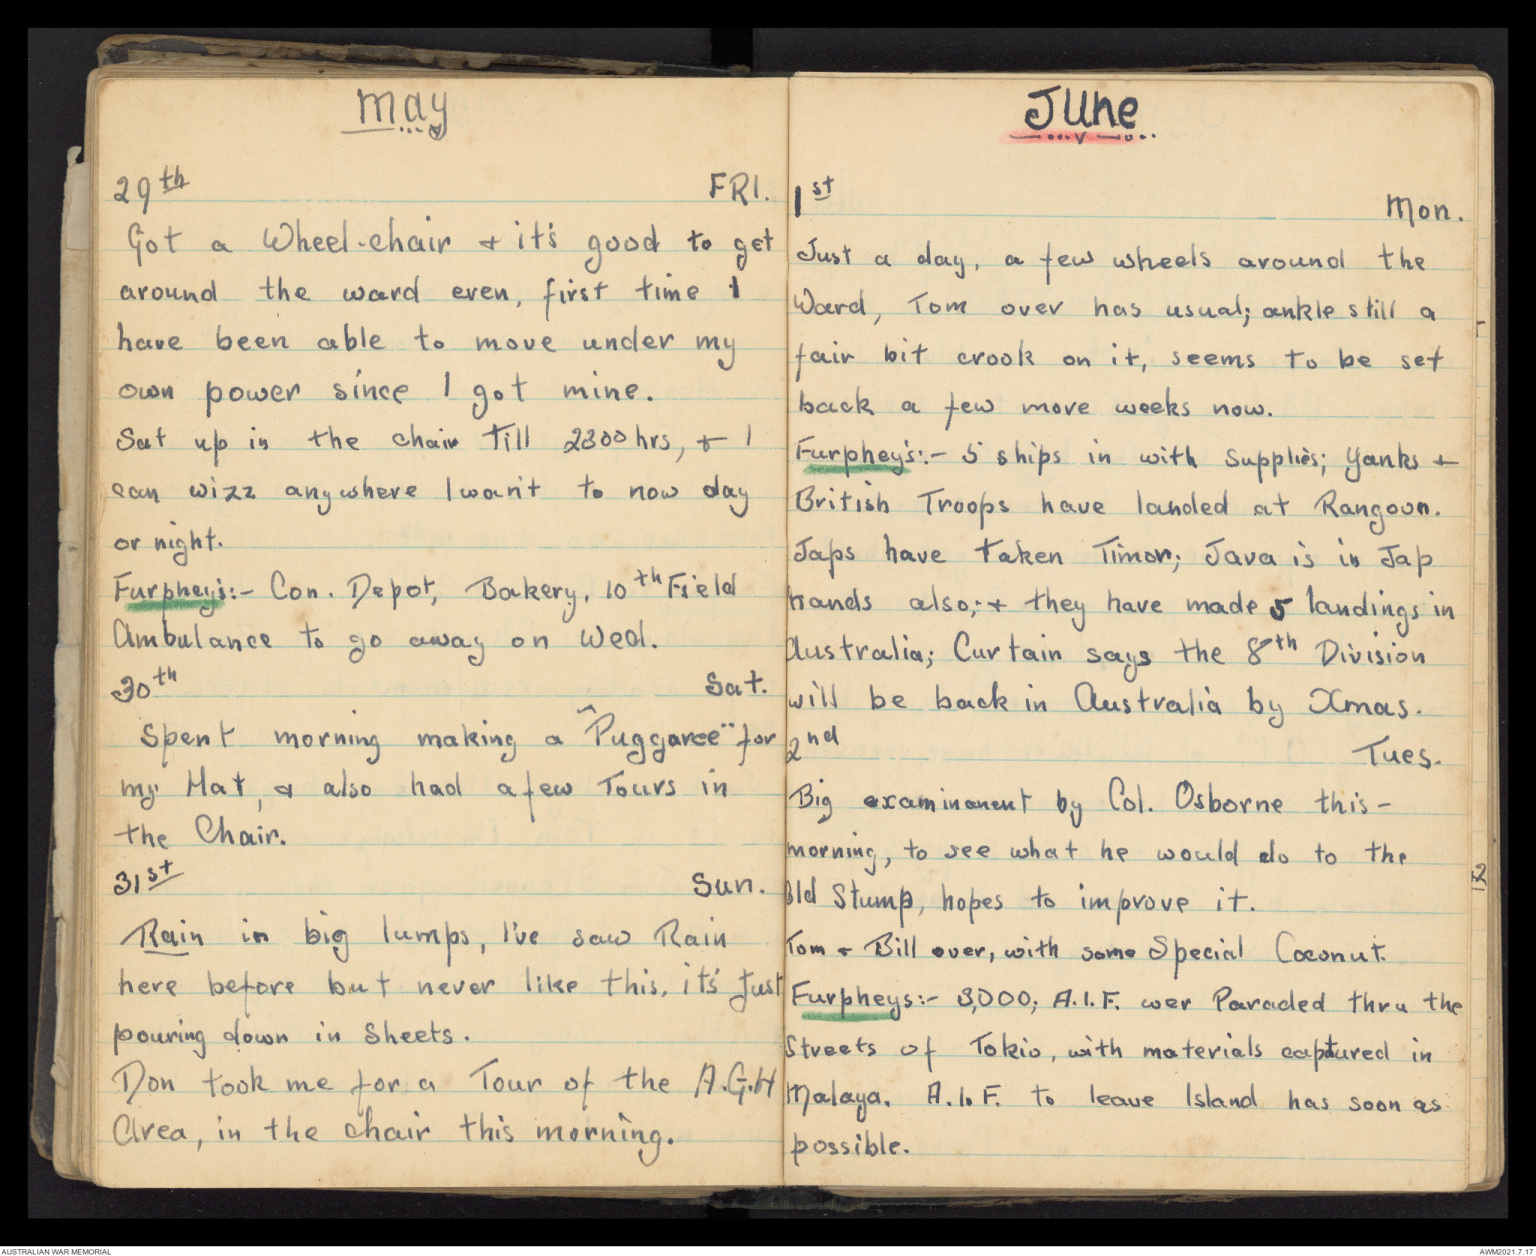 May
29th FRI.
Got a Wheel-chair & it's good to get
around the ward even, first time I
have been able to move under my
own power since I got mine.
Sat up in the chair Till 2300 hrs, & I
can wizz anywhere I wan't to now day
or night.
Furphey's:- Con. Depot, Bakery, 10th Field
Ambulance to go away on Wed.
30th Sat.
Spent morning making a "Puggaree" for
my Hat, & also had a few Tours in
the Chair.
31st Sun.
Rain in big lumps, I've saw Rain
here before but never like this, it's Just
pouring down in Sheets.
Don took me for a Tour of the A.G.H
Area, in the chair this morning.
June
1st Mon.
Just a day, a few wheels around the
Ward, Tom over has usual; ankle still a
fair bit crook on it, seems to be set
back a few more weeks now.
Furphey's:- 5 ships in with Supplies; Yanks &
British Troops have landed at Rangoon.
Japs have Taken Timor; Java is in Jap
hands also; & they have made 5 landings in
Australia; Curtain says the 8th Division
will be back in Australia by Xmas.
2nd Tues.
Big examinanent by Col. Osborne this-
morning, to see what he would do to the
Old Stump, hopes to improve it.
Tom & Bill over, with some Special Coconut.
Furpheys:- 3,000; A.I.F. wer Paraded thru the
Streets of Tokio, with materials captured in
Malaya. A.I.F. to leave Island has soon as
possible.
AUSTRALIAN WAR MEMORIAL
AWM2021.7.17